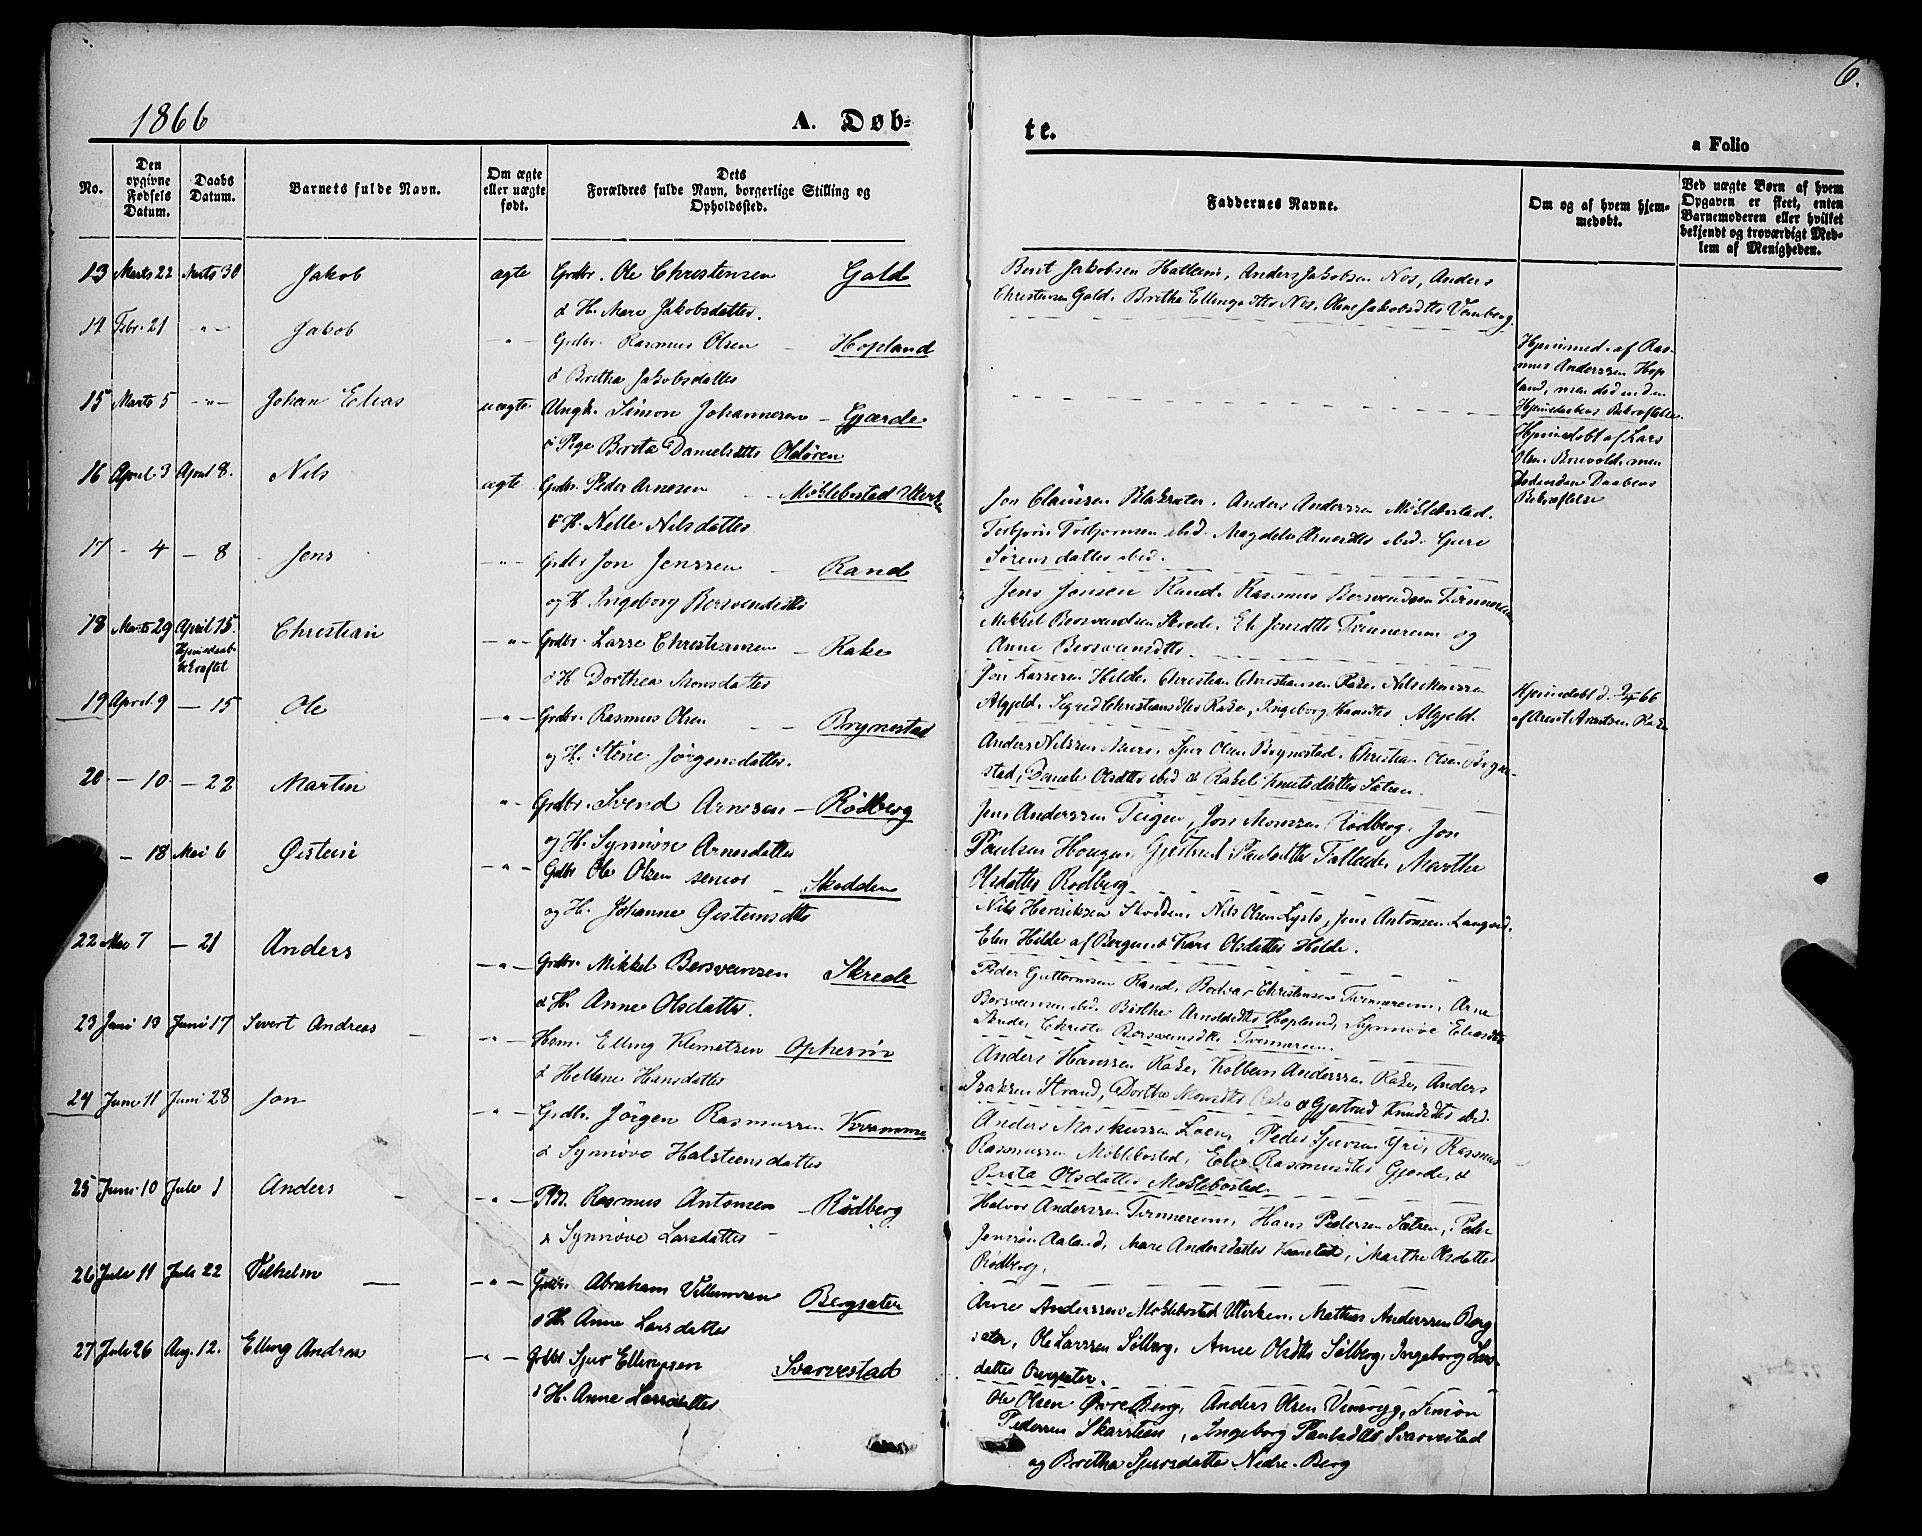 1866
A. Døb-
te.
6.
a Folio
No.
Den opgivne Fødsels Datum.
Daabs Datum.
Barnets fulde Navn.
Om ægte eller uægte født.
Dets Forældres fulde Navn, borgerlige Stilling og Opholdssted.
Faddernes Navne.
Om og af hvem hjem-
medøbt.
Ved uægte Børn af hvem
Opgaven er skeet, enten
Barnemoderen eller hvilket
bekjendt og troværdigt Med-
lem af Menigheden.
13 Marts 22 Marts 30 Jakob ægte Grdbr. Ole Christensen Gald
& H. Mare Jakobsdatter.
Berit Jakobsen Hallem, Anders Jakobsen Nos, Anders
Christensen Gald. Britha Ellingsdtr Nos, Oline Jakobsdtr Vamberg.
14 Febr. 21 -"- Jakob -"- Grdbr. Rasmus Olsen - Hopland
& Britha Jakobsdatter
Hjemmed. af Ras-
mus Anderssen Hop
land, men død inden
Hjemmedaabens Bekræftelse.
15 Marts 5 -"- Johan Elias uægte Ungk. Simon Johannesen - Gjærde
& Pige Berita Danielsdtr Oldøren
Hjemmedøbt af Lars
Olsen, men
Død inden Daabens
Bekræftelse
16 April 3 April 8. Nils ægte Grdbr. Peder Arnesen - Møklebostad Uterk
& H. Nelle Nilsdatter
Jon Claussen Blaksæter. Anders Anderssen Møklebostad.
Torbjørn Torbjørnsen ibid. Magdele Arnesdtr ibid. Guri
Sørensdatter ibid.
17 - 4 - 8 Jens -"- Grdbr Jon Jenssen - Rand
og H. Ingeborg Bersvendsdtr
Jens Jonsen Rand. Rasmus Bersvendsen Tvinnereim
Mikkel Bersvendsen Skrede, Eli Jensdtr Tvinnereim og
Anne Bersvensdtr.
18 Marts 29 April 15. Hjemmedaab bekræftet Christian -"- Grdbr. Lasse Christiansen - Rake
& H Dorthea Monsdatter
Jon Lassesen Hilde, Christian Christiansen Rake, Nils Monssen
Algjeld. Sigrid Christiansdtr Rake, Ingeborg Hansdtr Algjeld.
Hjemmedøbt d. 2/4 66
af Arent Arentsen Rake
19 April 9 - 15 Ole -"- Grdbr. Rasmus Olsen - - Brynestad
og H. Stine Jørgensdatter.
Anders Nilssen Muri. Sjur Olsen Brynestad. Christian Olsen Bryne-
stad, Daniele Olsdtr ibid & Rakel Knutsdatter Sætren.
20 - 10 - 22 Martin -"- Grdbr. Svend Arnesen - Rødberg
og H. Synnøve Arnesdatter
Jens Anderssen Teigen, Jon Monssen Rødberg. Jon
Paulsen Hougen, Gjertrud Paulsdtr Tollader, Marthe
Olsdatter Rødberg.
- 18 Mai 6 Øistein -"- Grdbr Ole Olsen senior - Skodden
og H. Johanne Øisteinsdtr
Nils Henriksen Skodden, Nils Olsen Lyslo, Jens Antonsen Langved.
Elen Hilde af Bergen & Kari Olsdatter Hilde.
22 Mai 7 - 21 Anders -"- Grdbr. Mikkel Bersveinsen Skrede
& H. Anne Olsdatter.
Peder Guttormsen Rand. Bodvar Christensen Tvinnereim, Arne
Bersveinsen ibid. Birthe Arnoldsdtr Hopland, Synnøve Eliasdtr
Skrede, Christi Bersveinsdtr Tvinnereim.
23 Juni 13 Juni 17 Severt Andreas -"- Hsm. Elling Klemetsen Ophersøi
& Hellene Hansdatter
Anders Hanssen Rake, Kolbein Anderssen Rake, Anders
Isaksen Strand, Dorthe Monsdtr Rake & Gjertrud Knudsdtr ibid.
24 Juni 11 Juni 28 Jon -"- Grdbr. Jørgen Rasmussen Kvamme
& Synnøve Halsteensdatter
Anders Markussen Loen, Peder Sjursen Yri, Rasmus
Rasmussen Møklebostad, Eli Rasmusdtr Gjerde, &
Berita Olsdatter Møklebostad.
25 Juni 10 Juli 1 Anders - -"- Pld. Rasmus Antonsen - Rødberg
& Synnøve Larsdatter -
Halvor Anderssen Tvinnereim, Hans Pedersen Sætren, Peder
Jensøn Aaland, Mare Andersdatter Kaarstad, Marthe Olsdatter
Rødberg.
26 Juli 11 Juli 22 Vilhelm - -"- Grdbr. Abraham Villumsen Bergsæter
& H. Anne Larsdatter
Arne Anderssen Møklebostad Uterken. Mathias Anderssen Berg
sæter, Ole Larssen Sølberg, Anne Olsdtr Sølberg, Ingeborg Lars
datter Bergsæter.
27 Juli 26 Aug. 12. Elling Andrea -"- Grdbr Sjur Ellingsen Svarvestad
& H. Anne Larsdatter
Ole Olsen Øvre Berg, Anders Olsen, Simon
Pederssen Skarstein, Ingeborg Paulsdtr Svarvestad
og Britha Sjursdatter Nedre-Berg